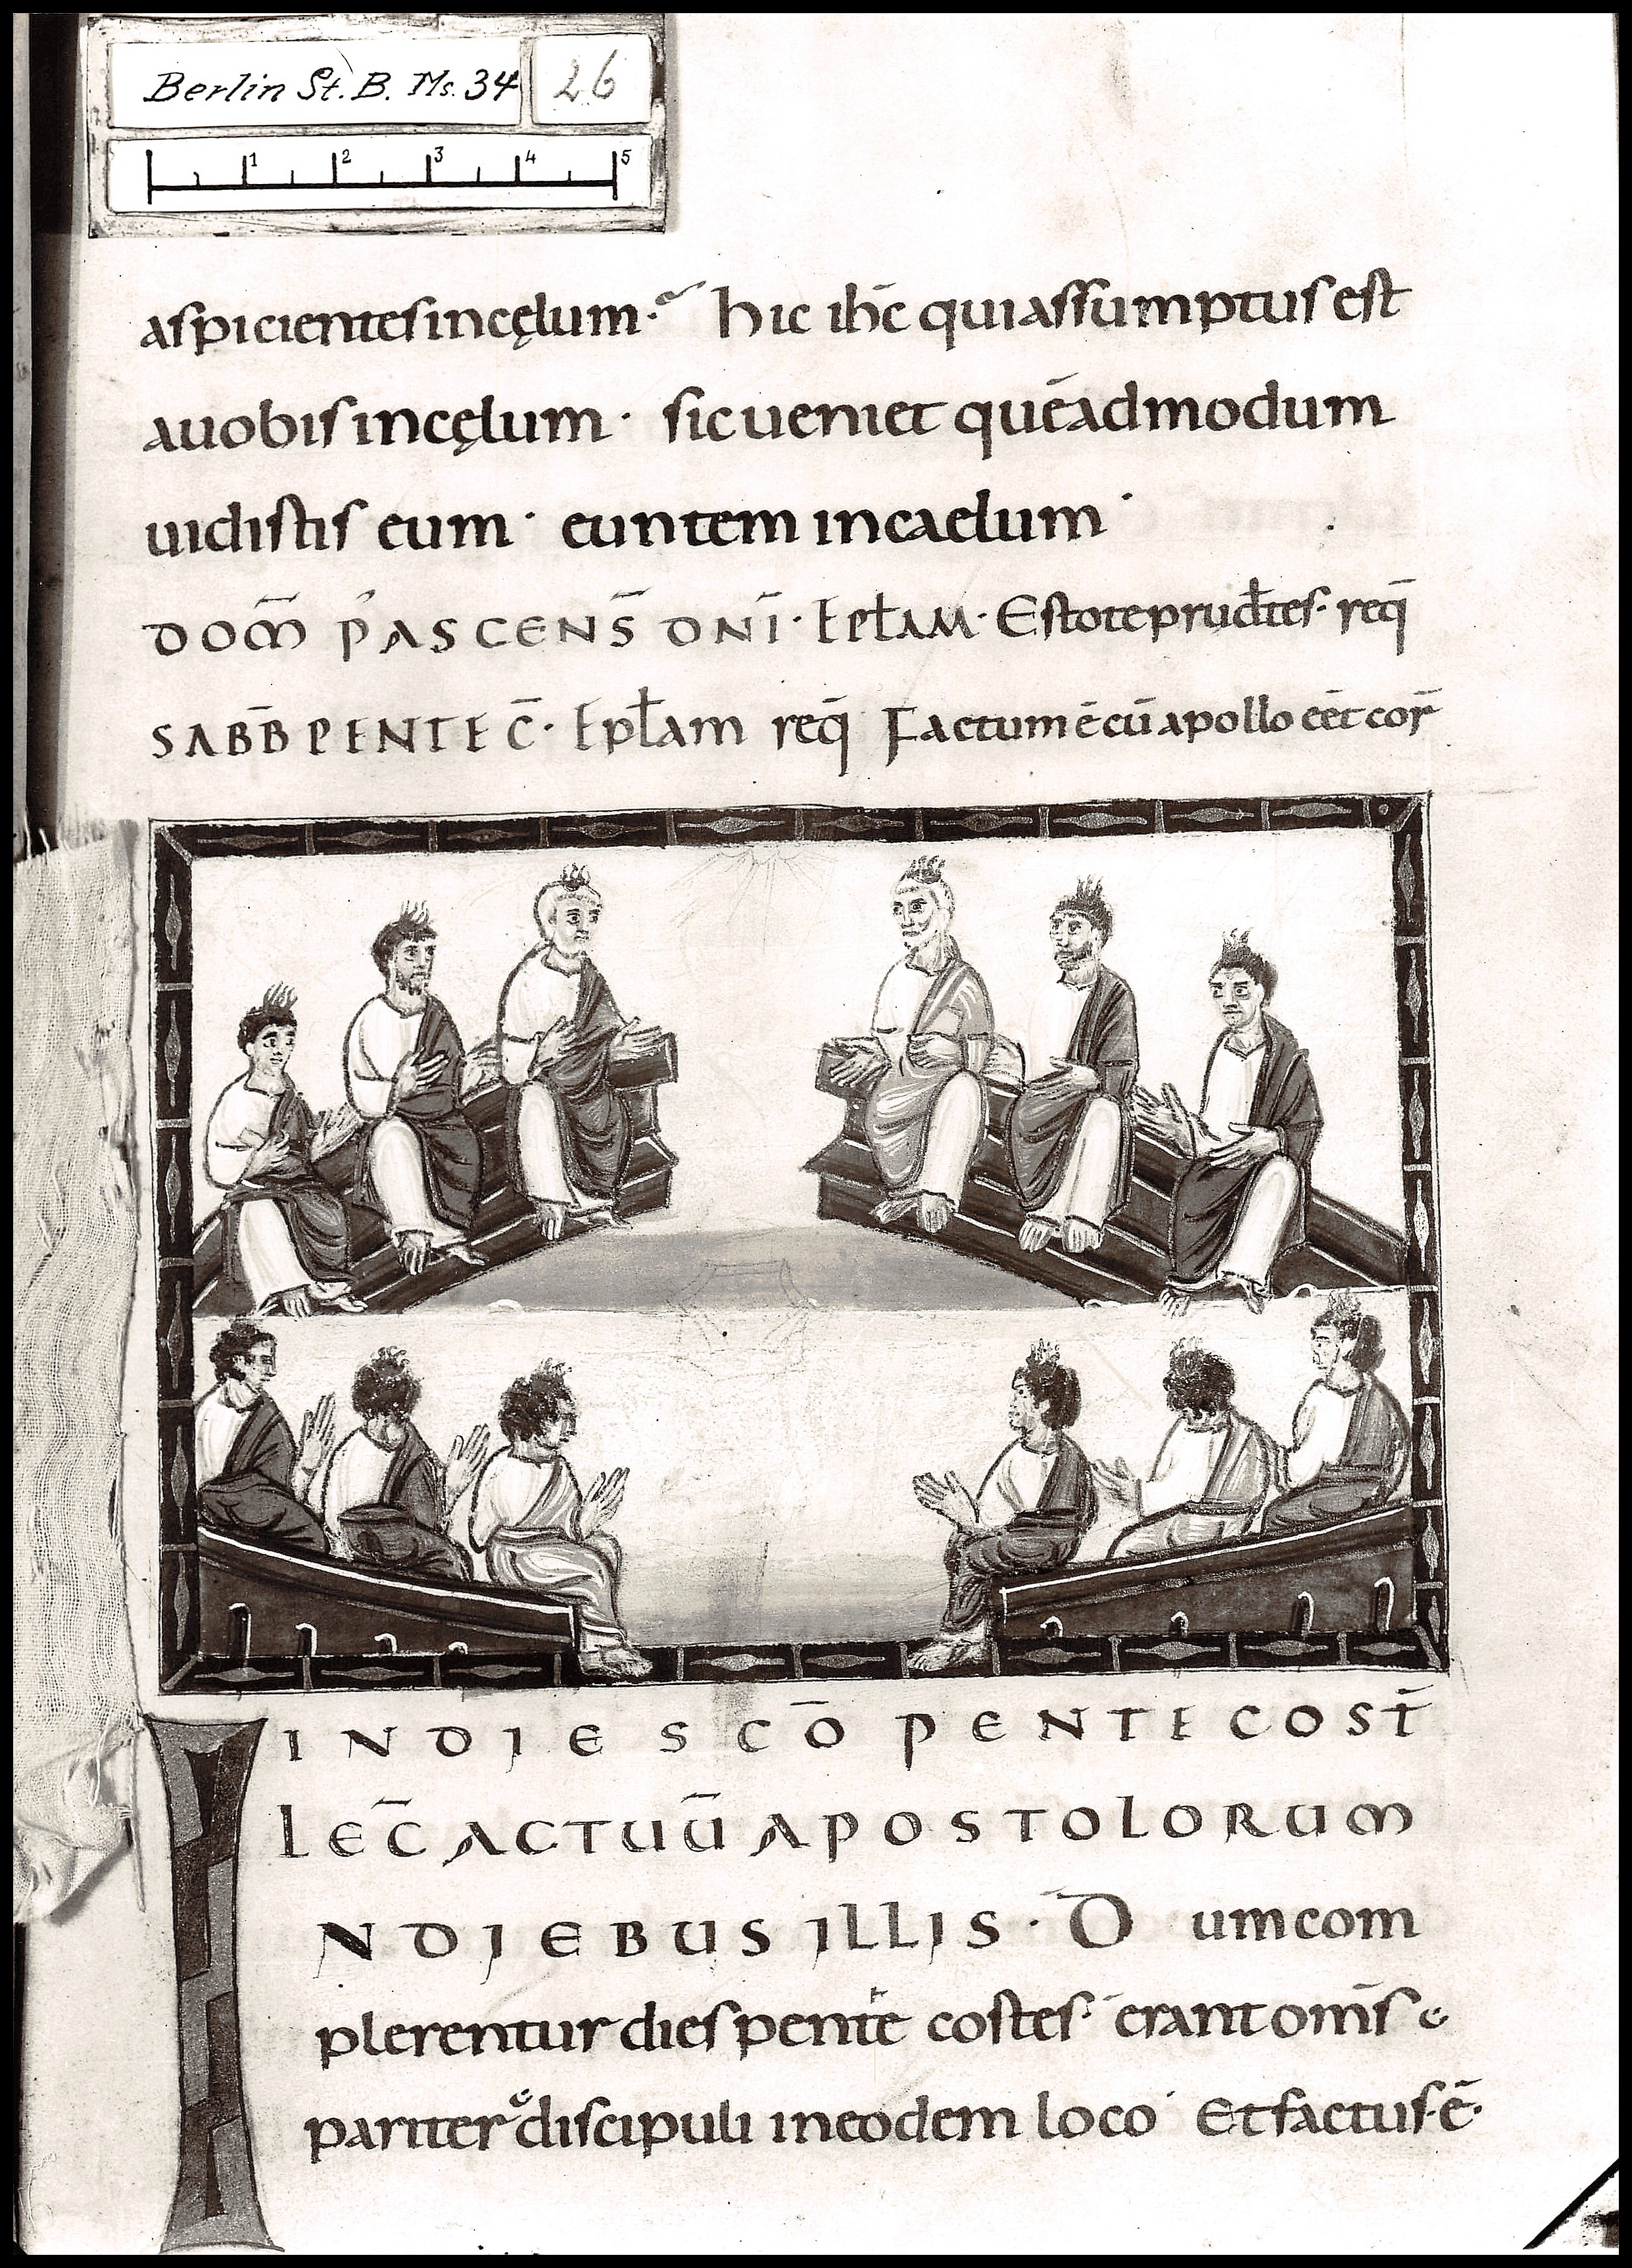 Berlin St. B. Ms. 34 26
1 2 3 4 5
aspicientes in cęlum· hic ih̄c qui assumptus est
a uobis in cęlum· sic ueniet quēadmodum
uidistis eum· euntem in caelum·
DOM̄ P' ASCENS̄ DN̄I· EPŁAM· Estote prudētes· req̄
SABB̄ PENTEC̄· Epłam req̄ Factum ē cū apollo eēt cor̄
IN DIE SC̄O PENTECOST̄
LEC̄ ACTUŪ APOSTOLORUM
INDIEBUS ILLIS· Dum com
plerentur dies pente costes· erant om̄s
pariter discipuli in eodem loco Et factus· ē·